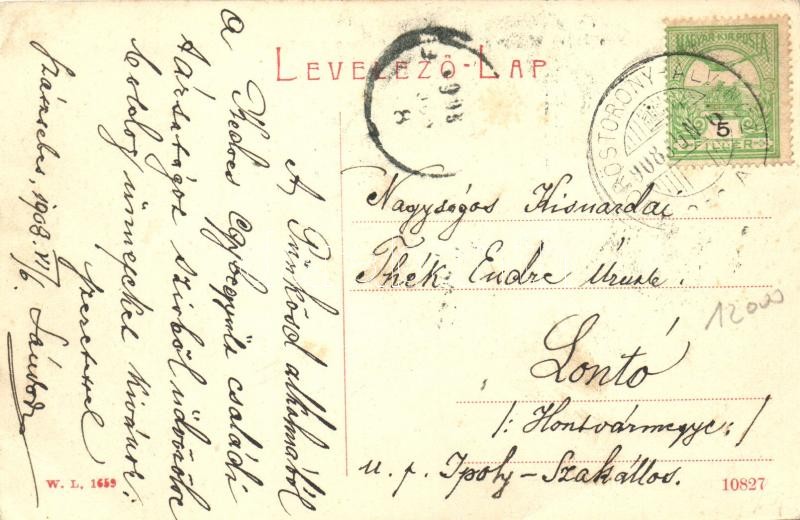 LEVELEZŐ-LAP
MAGYAR KIR. POSTA
5
FILLÉR
908
A Pünkösd alkalmából
a Kedves Egybegyült családi
társaságot szivből üdvözölve
boldog ünnepeket kivánok:
szeretettel
Szászsebes, 1908. VI/6. Sándor
Nagyságos Kisnardai
Thék Endre Urnak.
Lontó
/: Hontvármegye: /
u. p. Ipoly-Szakállos.
12000
W. L. 1659
10827